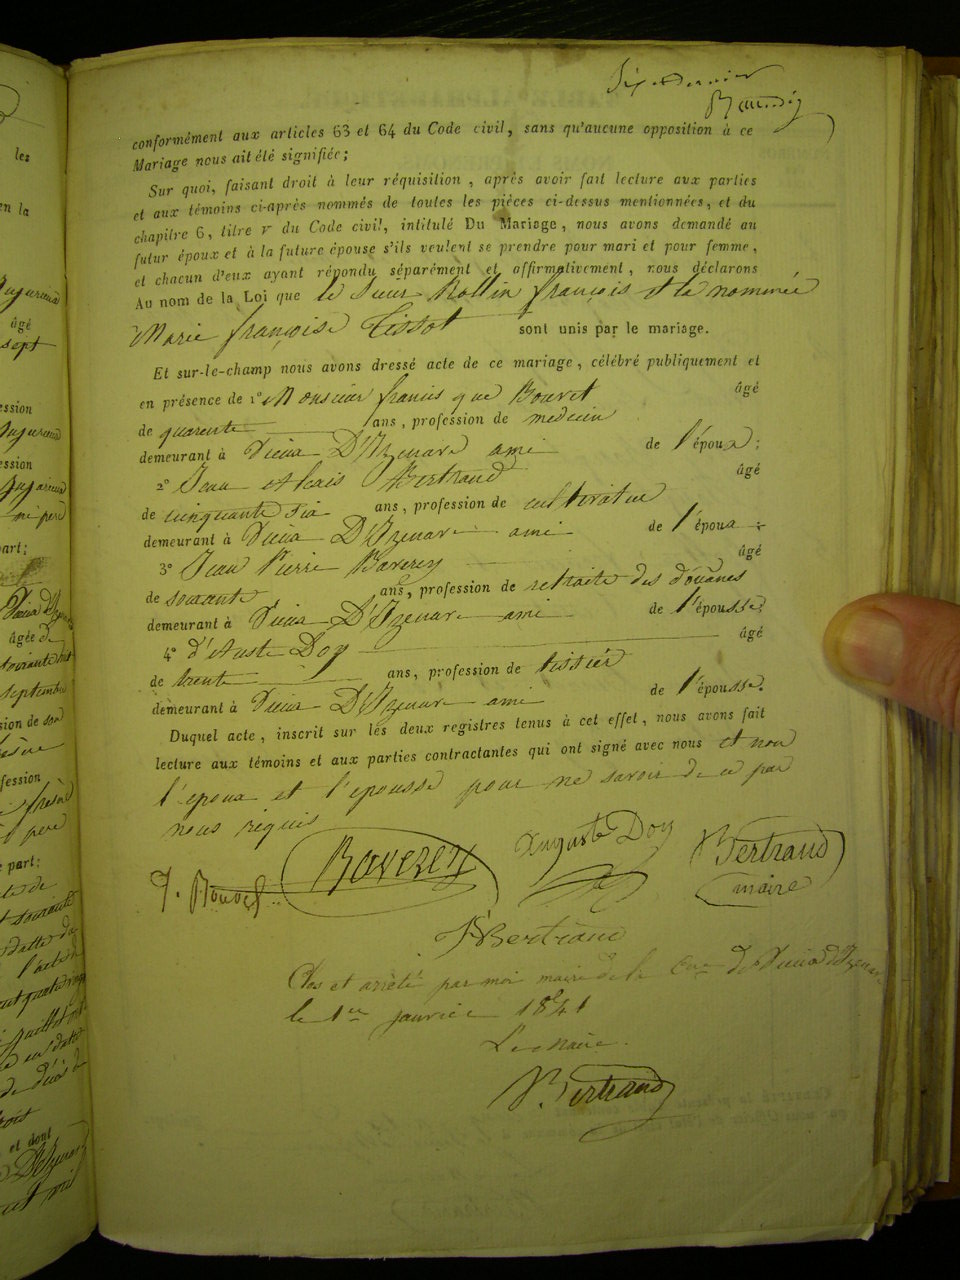 les
en la
âgé
sept
ession
fession
part;
âgée de
septembre
sion de son
fession
père
e part;
et dont
conformément aux articles 63 et 64 du Code civil, sans qu'aucune opposition à ce
Mariage nous ait été signifiée;
Sur quoi, faisant droit à leur réquisition, après avoir fait lecture aux parties
et aux témoins ci-après nommés de toutes les pièces ci-dessus mentionnées, et du
chapitre 6, titre V du Code civil, intitulé Du Mariage, nous avons demandé au
futur époux et à la future épouse s'ils veulent se prendre pour mari et pour femme,
et chacun d'eux ayant répondu séparément et affirmativement, nous déclarons
Au nom de la Loi que le Sieur Rollin françois et la nommée
Marie françoise Tissot sont unis par le mariage.
Et sur-le-champ nous avons dressé acte de ce mariage, célébré publiquement et
en présence de 1º Monsieur francis que Bouvet âgé
de quarente ans, profession de medecin
demeurant à Vieux D'Izenave ami de l'époux;
2º Jean Bertrand âgé
de cinquante six ans, profession de cultivateur
demeurant à Vieux D'Izenave ami de l'époux;
3º Jean Pierre Baverey âgé
de soixante ans, profession de retraite des douanes
demeurant à Vieux D'Izenave ami de l'épousse;
4º Doy âgé
de trente ans, profession de tissier
demeurant à Vieux D'Izenave ami de l'épousse.
Duquel acte, inscrit sur les deux registres tenus à cet effet, nous avons fait
lecture aux témoins et aux parties contractantes qui ont signé avec nous et non
l'epoux et l'epousse pour ne savoir de ce par
nous requis
Baverey Auguste Doy Bertrand
f. Bouvet maire
Bertrand
Clos et arrêté par moi maire de la Cne de Vieux D'Izenave
le 1er janvier 1841
Le Maire.
Bertrand